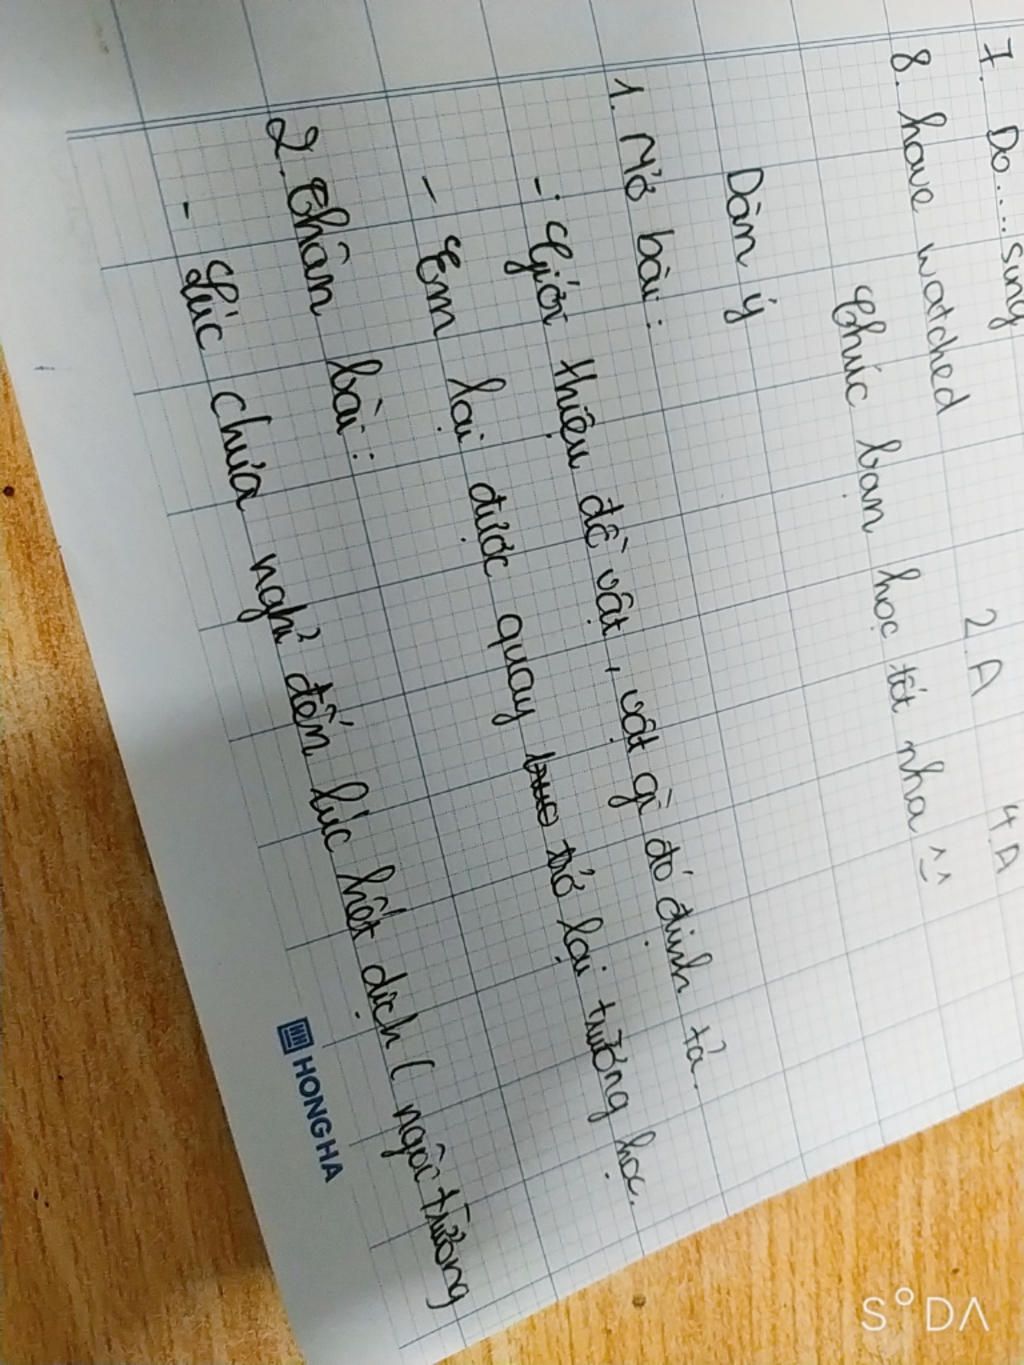 7. Do.... sung
2. A
4. A
8. have watched
Chúc bạn học tốt nha ^^
Dàn ý
1. Mở bài:
- Giới thiệu đồ vật, vật gì đó định tả.
- Em lại được quay trở lại trường học.
2. Thân bài:
- Lúc chưa nghỉ đến lúc hết dịch (ngôi trường
HH HONG HA
SODA